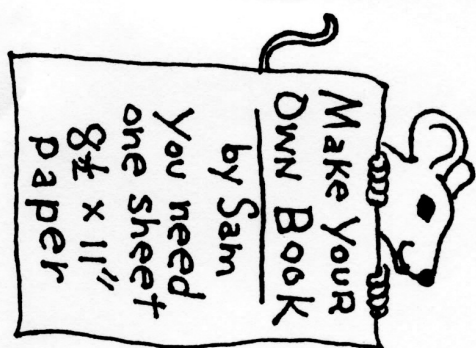 Make YouR
OWN BooK
by Sam
You need
one sheet
8½ x 11"
paper